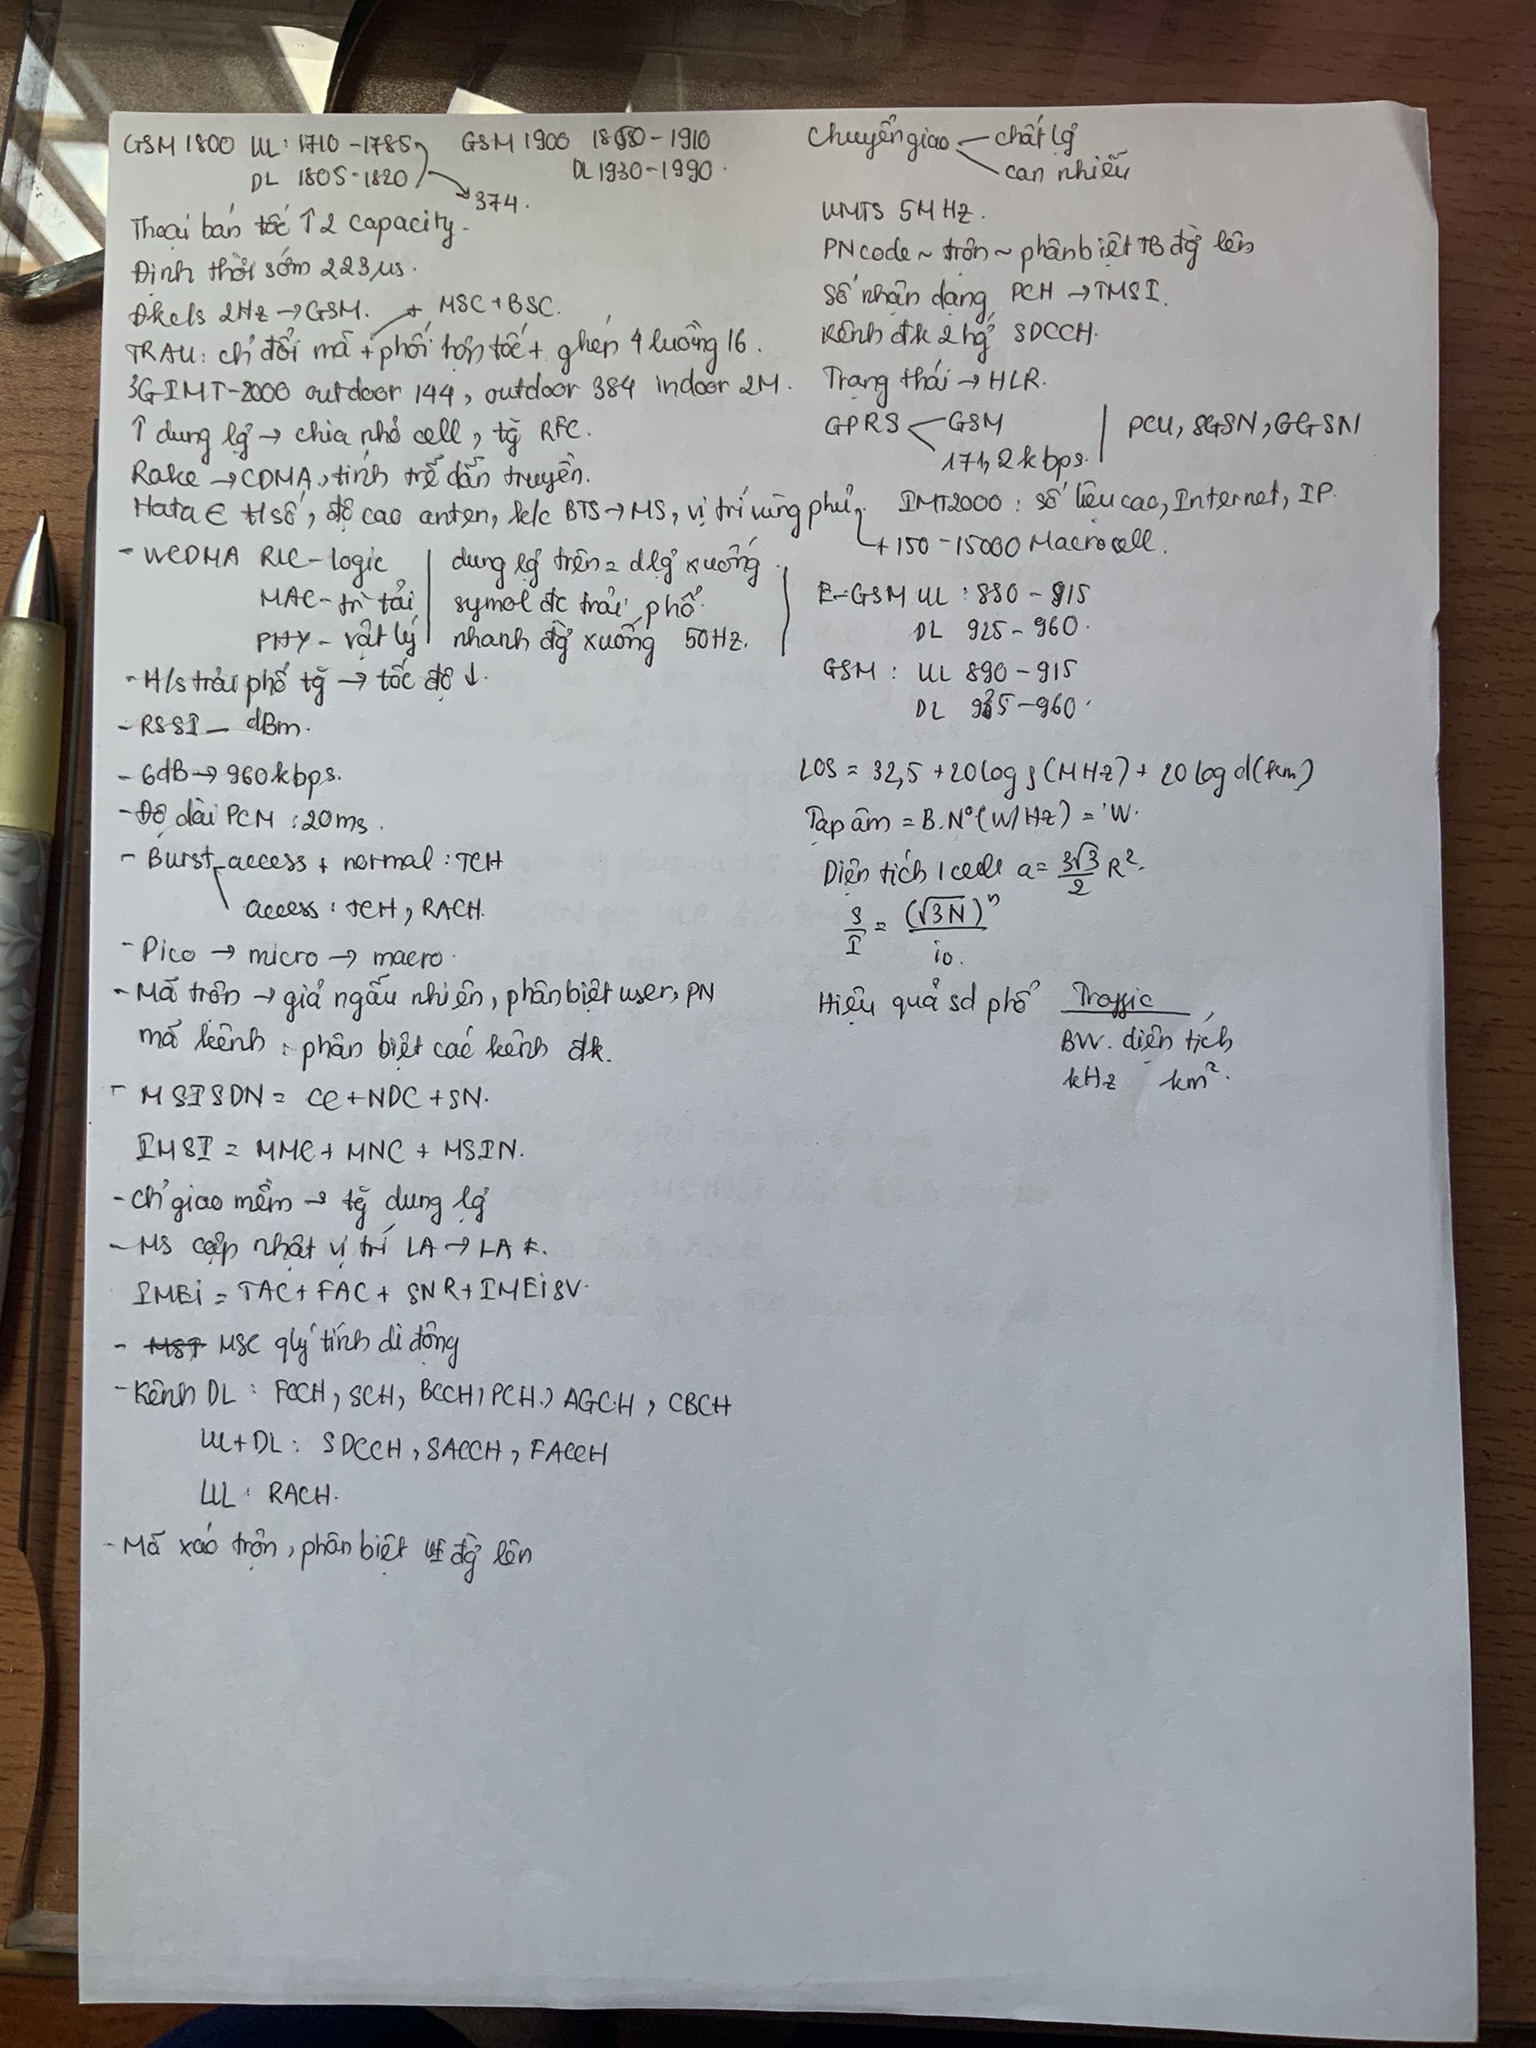 GSM 1800 UL: 1710 - 1785
DL 1805 - 1820
374.
GSM 1900 1850 - 1910
DL 1930 - 1990.
Thoại bán tốc ↑2 capacity.
Định thời sớm 223 µs.
Đkcls 2Hz → GSM. + MSC + BSC.
TRAU: ch' đổi mã + phối hợp tốc + ghép 4 luồng 16.
3G IMT-2000 outdoor 144, outdoor 384 indoor 2M.
↑ dung lg → chia nhỏ cell, tg RFC.
Rake → CDMA, tính trễ dẫn truyền.
Hata ∈ H số, độ cao anten, k/c BTS → MS, vị trí vùng phủ.
+ 150 - 15000 Macrocell.
- WCDMA RLC - logic
MAC - tr tải
PHY - vật lý
dung lg trên = dlg xuống
symol đc trải phổ.
nhanh đg xuống 50Hz.
- H/s trải phổ tg → tốc độ ↓.
- RSSI - dBm.
- 6dB → 960 kbps.
- Độ dài PCM : 20ms.
- Burst access + normal : TCH
access : TCH, RACH.
- Pico → micro → macro.
- Mã trộn → giả ngẫu nhiên, phân biệt user, PN
mã kênh : phân biệt các kênh đk.
- MSISDN = CC + NDC + SN.
IMSI = MMC + MNC + MSIN.
- Ch' giao mềm → tg dung lg
- MS cập nhật vị trí LA → LA ≠.
IMEi = TAC + FAC + SNR + IMEiSV.
- MSC qlý tính di động
- Kênh DL : FCCH, SCH, BCCH, PCH, AGCH, CBCH
UL + DL : SDCCH, SACCH, FACCH
UL : RACH.
- Mã xáo trộn, phân biệt đg lên
Chuyển giao chất lg
can nhiễu
UMTS 5MHz.
PN code ~ trộn ~ phân biệt TB đg lên
Số nhận dạng PCH → TMSI.
Kênh đk 2 hg SDCCH.
Trạng thái → HLR.
GPRS GSM
171,2 kbps.
PCU, SGSN, GGSN
IMT2000 : số liệu cao, Internet, IP.
E-GSM UL : 880 - 915
DL 925 - 960.
GSM : UL 890 - 915
DL 935 - 960.
LOS = 32,5 + 20 log f (MHz) + 20 log d (km)
Tạp âm = B.N° (W/Hz) = W.
Diện tích 1 cell a = 3√3/2 R².
S/I = (√3N)ⁿ/i₀.
Hiệu quả sd phổ Traffic
BW. diện tích
kHz km².